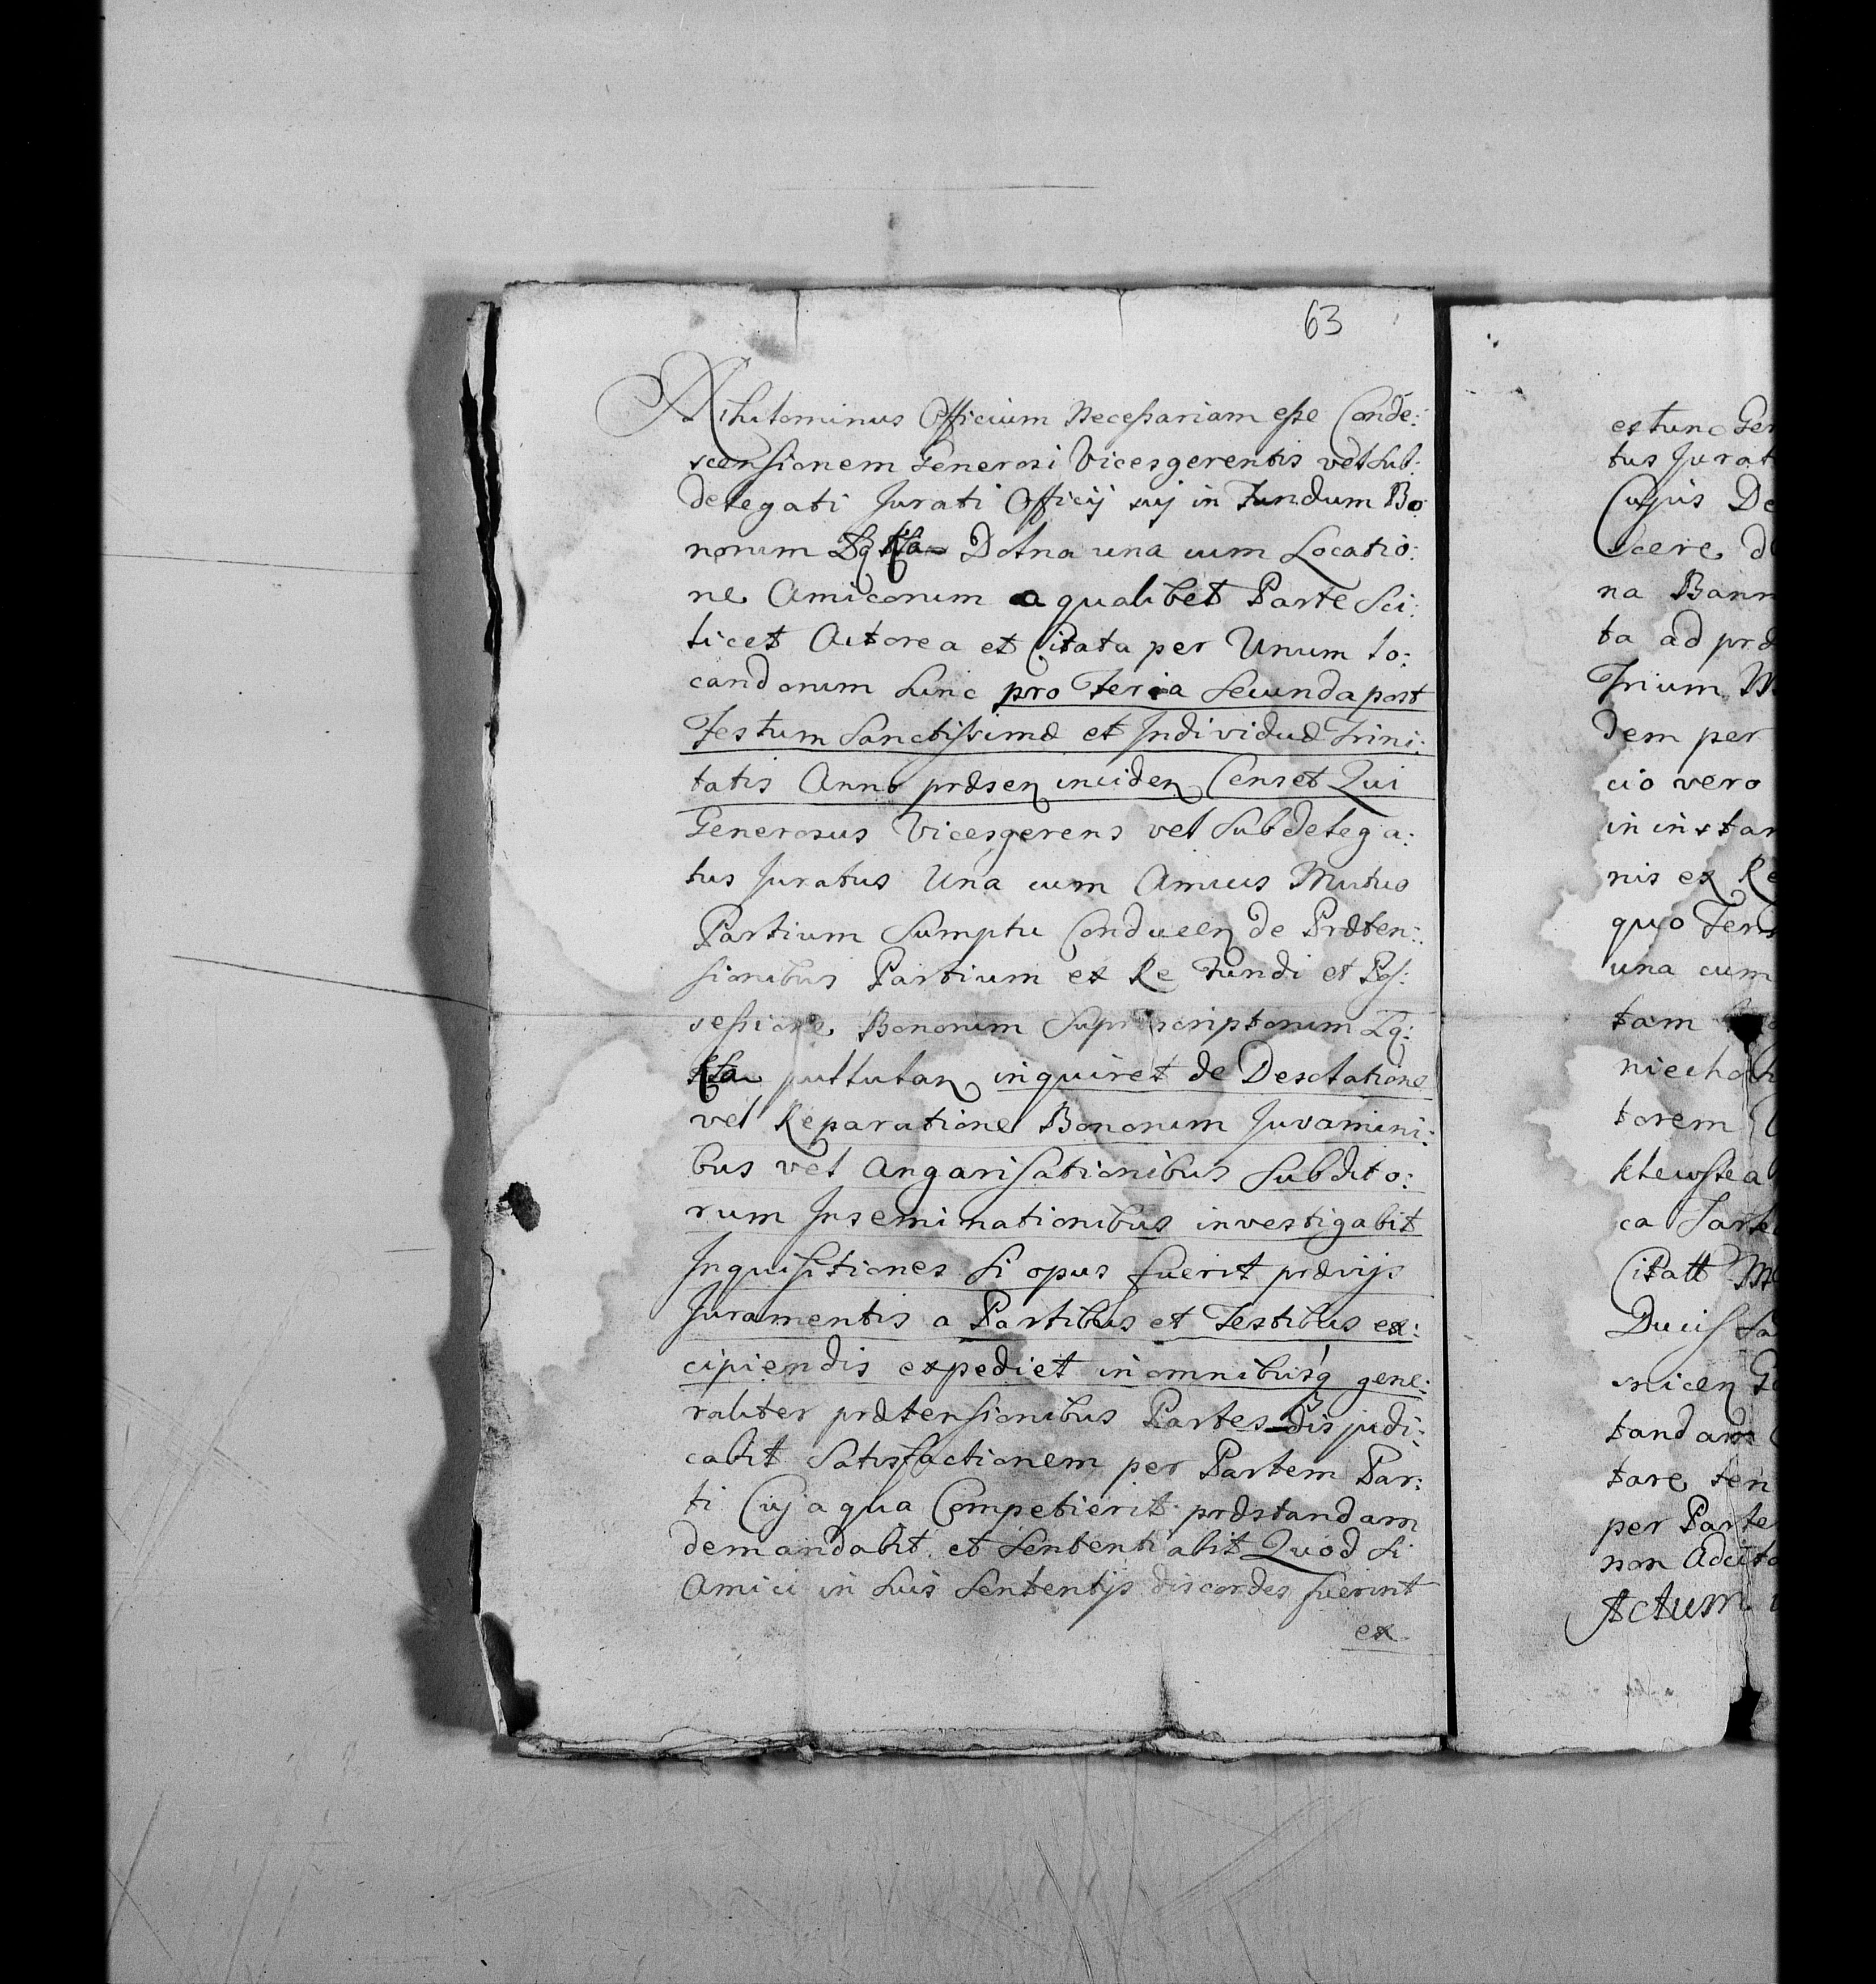 63
Nihilominus Officium necessariam esse Conde:
scensionem Generosi Vicesgerentis vel Sub:
delegati Jurati Officij sui in Fundum Bo
norum Lg Kta Dolna una cum Locatio:
ne Amicorum a qualibet Parte Sci:
licet Actorea et Citata per Unum lo:
candorum hinc pro Feria Secunda post
Festum Sanctissimæ et Individuæ Trini:
tatis Anno præsen inciden Censet Qui
Generosus Vicesgerens vel Subdelega:
tus Juratus Una cum Amicis Mutuo
Partium Sumptu Conducen de Præten:
sionibus Partium ex Re Fundi et Pos:
sessione Bonorum Suprascriptorum Lg:
Kta pullulan inquiret de Desolatione
vel Reparatione Bonorum Juvamini:
bus vel Angarisationibus Subdito:
rum Inseminationibus investigabit
Inquisitiones Si opus fuerit prævijs
Juramentis a Partibus et Testibus ex:
cipiendis expediet in omnibusq gene:
raliter prætensionibus Partes disjudi:
cabit Satisfactionem per Partem Par:
ti Cuj a qua Competierit præstandam
demandabit et Sententiabit Quod Si
Amici in Suis Sententijs discordes fuerint
ex
ex tunc Gen
tus Jurat
Cujus De
scere d
na Bann
ta ad præ
Trium M
dem per
cio vero
in instan
nis ex Re
quo Ter
una cum
tam
niecho
torem
Klewste
ca Parte
Citatt M
Ducis Sa
micen G
tandam
tare ten
per Parte
non Adcita
Actum